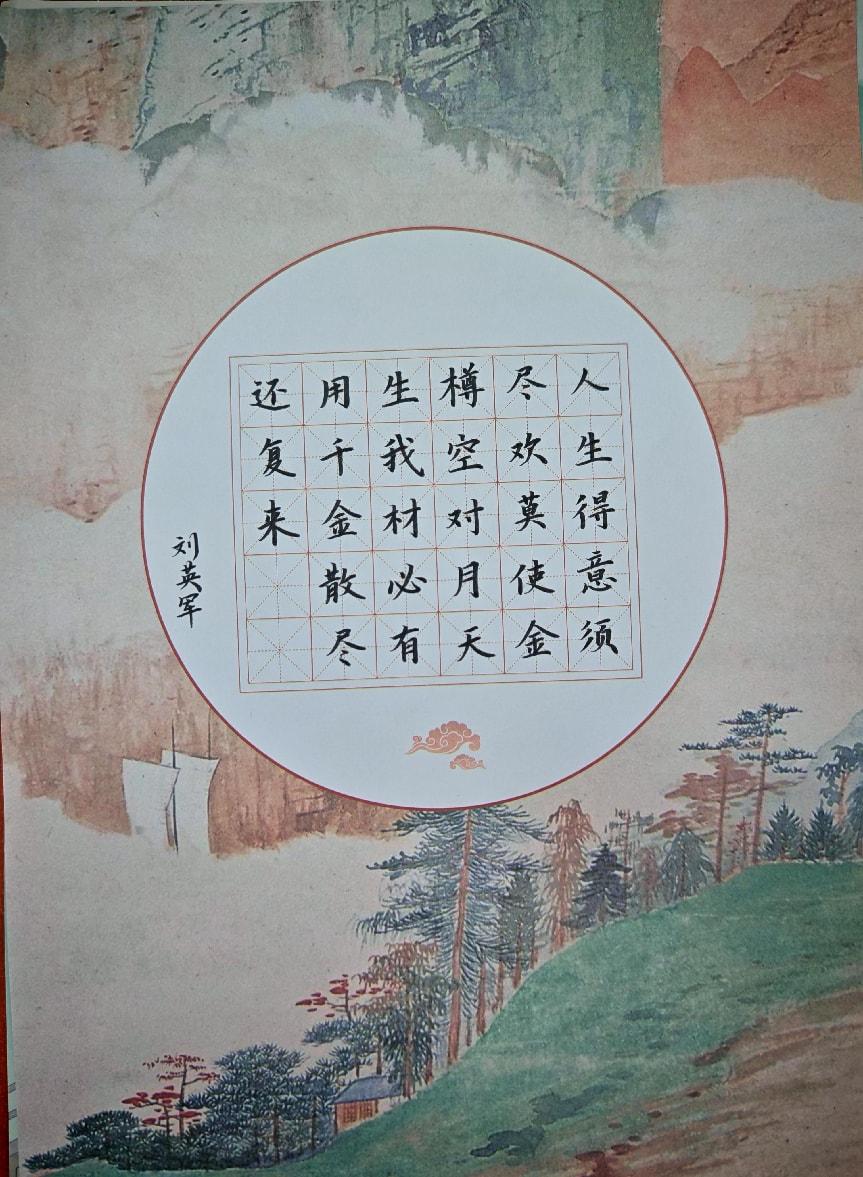 人生得意须
尽欢莫使金
樽空对月天
生我材必有
用千金散尽
还复来
刘英军